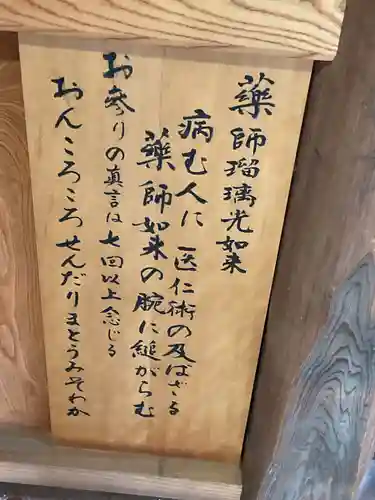 薬師瑠璃光如来
病む人に 医仁術の及ばざる
薬師如来の腕に縋がらむ
お参りの真言は七回以上念じる
おんころころせんだりまとうみそわか